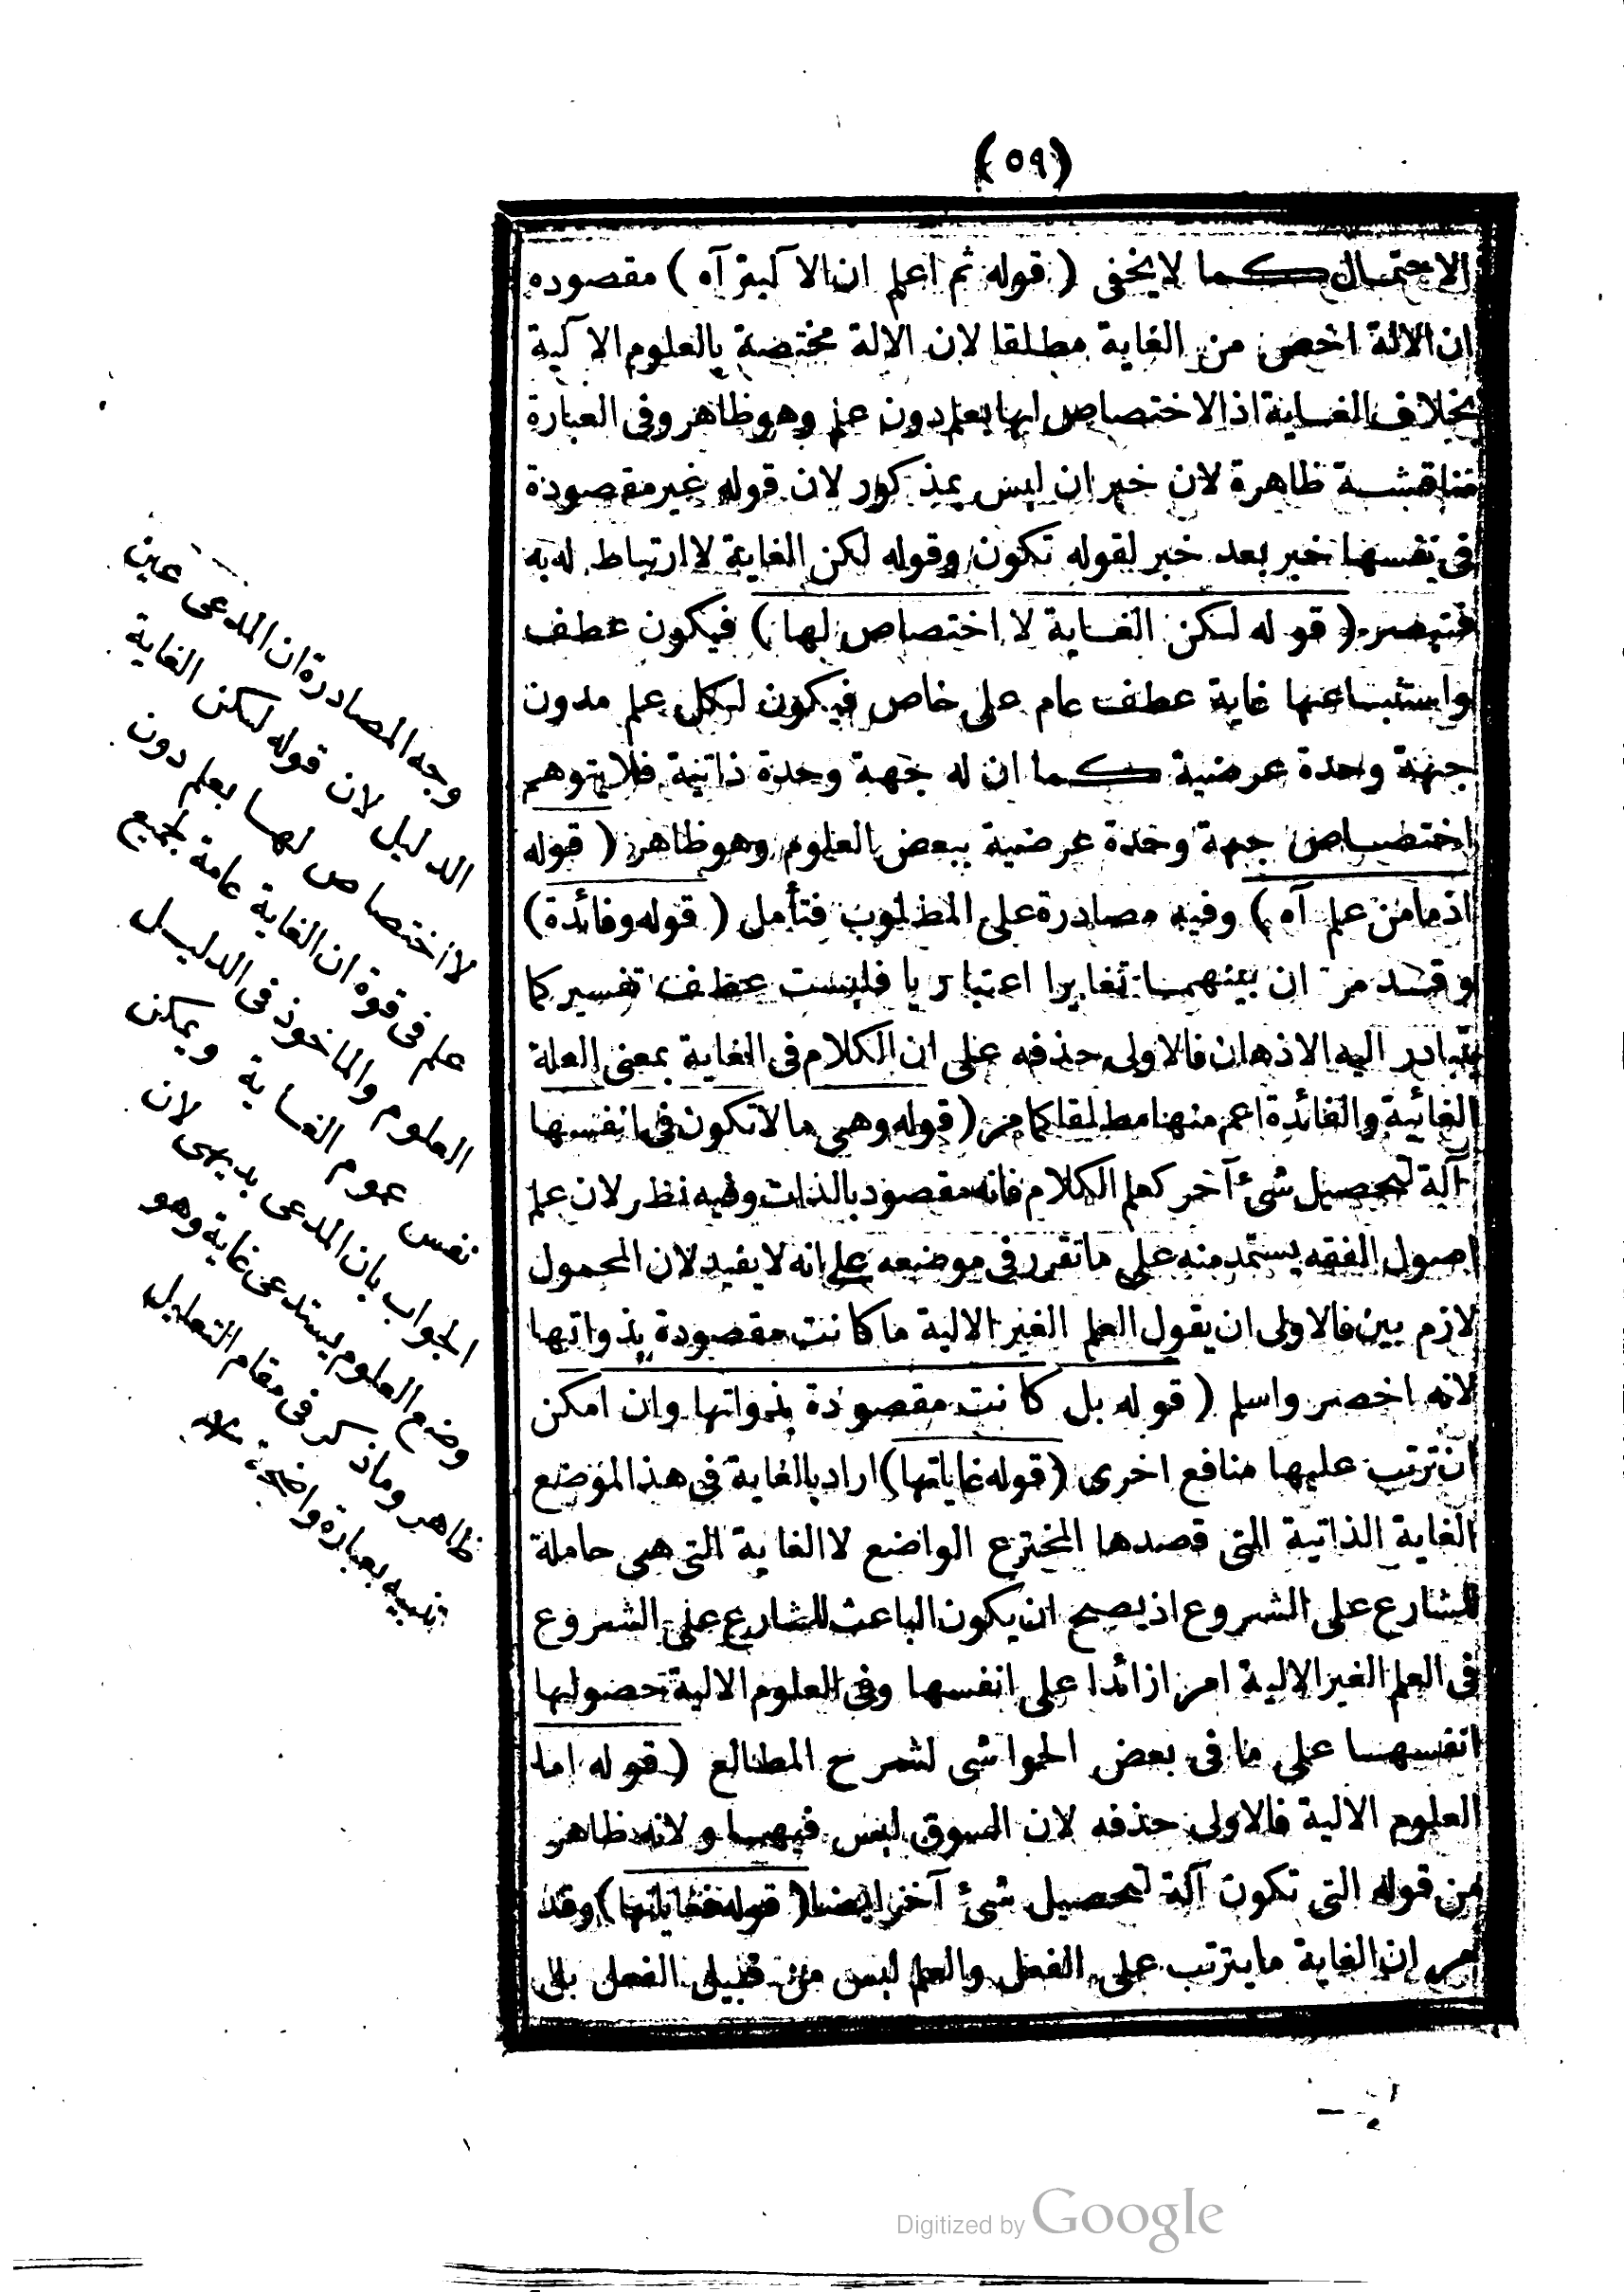 (٥٩)
الاحتمال كما لا يخفى ( قوله ثم اعلم ان الاّلية آه ) مقصوده
ان الالة اخص من الغاية مطلقا لان الالة مختصة بالعلوم الاّلية
بخلاف الغاية اذ لا اختصاص لها بعلم دون علم وهو ظاهر وفى العبارة
مناقشة ظاهرة لان خبر ان ليس بمذكور لان قوله غير مقصودة
فى نفسها خبر بعد خبر لقوله تكون وقوله لكن الغاية لا ارتباط له به
فتبصر ( قوله لكن الغاية لا اختصاص لها ) فيكون عطف
واستتباعها غاية عطف عام على خاص فيكون لكل علم مدون
جهة وحدة عرضية كما ان له جهة وحدة ذاتية فلا يتوهم
اختصاص جهة وحدة عرضية ببعض العلوم وهو ظاهر ( قوله
اذ ما من علم آه ) وفيه مصادرة على المطلوب فتأمل ( قوله وفائدة )
وقد مر ان بينهما تغايرا اعتباريا فليست عطف تفسير كما
يتبادر اليه الاذهان فالاولى حذفه على ان الكلام فى الغاية بمعنى العلة
الغائية والفائدة اعم منها مطلقا كما مر ( قوله وهى ما لا تكون فى انفسها
آلة لتحصيل شئ آخر كعلم الكلام فانه مقصود بالذات وفيه نظر لان علم
اصول الفقه يستمد منه على ما تقرر فى موضعه على انه لا يفيد لان المحمول
لازم بين فالاولى ان يقول العلم الغير الالية ما كانت مقصودة بذواتها
لانه اخصر واسلم ( قوله بل كانت مقصودة بذواتها وان امكن
ان ترتب عليها منافع اخرى ( قوله غاياتها ) اراد بالغاية فى هذا الموضع
الغاية الذاتية التى قصدها المخترع الواضع لا الغاية التى هى حاملة
للشارع على الشروع اذ يصح ان يكون الباعث للشارع على الشروع
فى العلم الغير الالية امرا زائدا على انفسها وفى العلوم الالية حصولها
انفسها على ما فى بعض الحواشى لشرح المطالع ( قوله اما
العلوم الالية فالاولى حذفه لان السوق ليس فيها ولانه ظاهر
من قوله التى تكون آلة لتحصيل شئ آخر ايضا ( قوله فغاياتها ) وقد
مر ان الغاية ما يترتب على الفعل والعلم ليس من قبيل الفعل بل
وجه المصادرة ان المدعى عين
الدليل لان قوله لكن الغاية
لا اختصاص لها بعلم دون
علم فى قوة ان الغاية عامة لجميع
العلوم والماخوذ فى الدليل
نفس عموم الغاية ويمكن
الجواب بان المدعى بديهى لان
وضع العلوم يستدعى غاية وهو
ظاهر وما ذكر فى مقام التعليل
تنبيه بعبارة واضحة
Digitized by Google